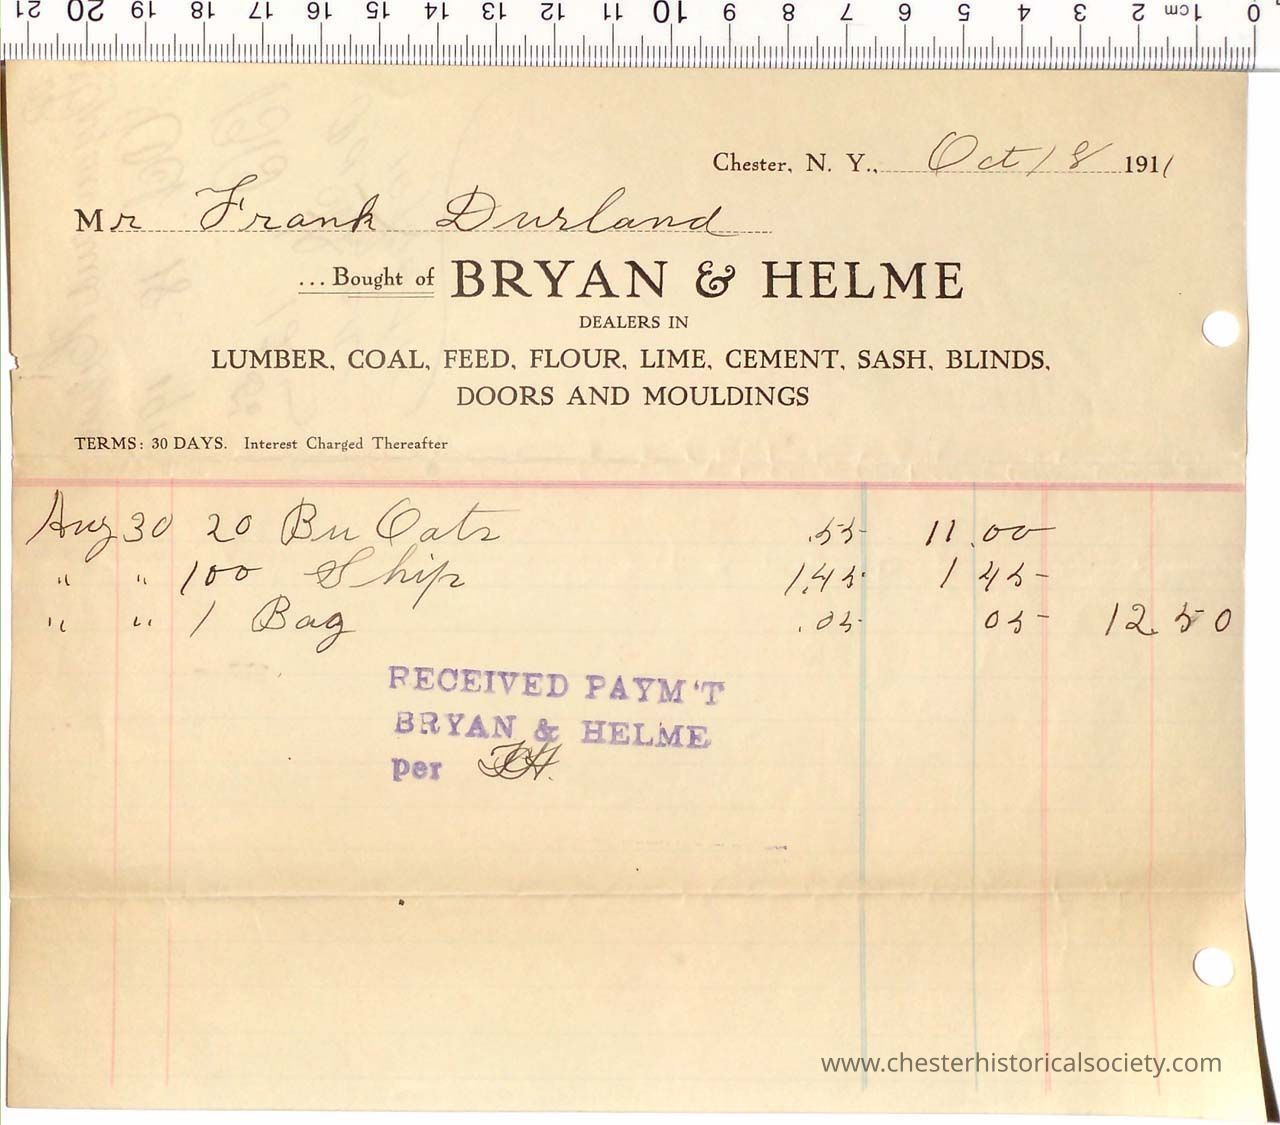 21 20 19 18 17 16 15 14 13 12 11 10 9 8 7 6 5 4 3 2 1cm 0
Chester, N. Y., Oct 18 1911
Mr Frank Durland
... Bought of BRYAN & HELME
DEALERS IN
LUMBER, COAL, FEED, FLOUR, LIME, CEMENT, SASH, BLINDS,
DOORS AND MOULDINGS
TERMS: 30 DAYS. Interest Charged Thereafter
Aug 30 20 Bu Oats .55 11.00
" " 100 Ship 1.45 1 45
" " 1 Bag .05 05 12.50
RECEIVED PAYM'T
BRYAN & HELME
per
www.chesterhistoricalsociety.com